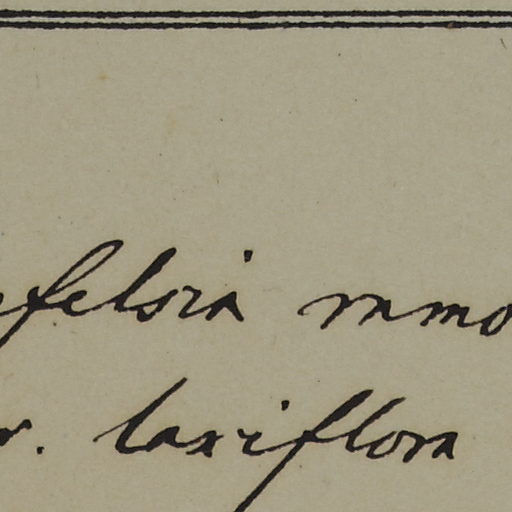 felsia ramo
r. laxiflora